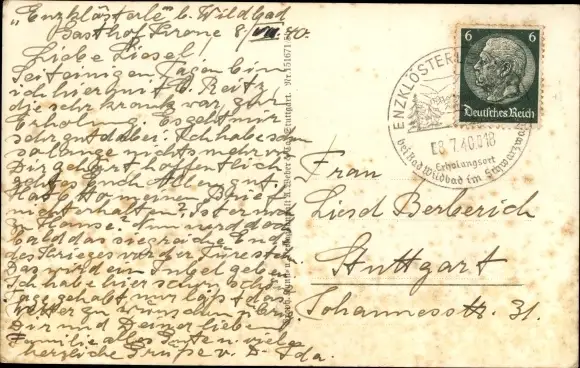 „Enzklösterle" b. Wildbad
Gasthof Krone 8./VII. 40.
Liebe Liesel!
Seit einigen Tagen bin
ich hier mit B. Reitz,
die sehr krank war, zur
Erholung. Es geht mir
sehr gut dabei. Ich habe schon
so lange nichts mehr v.
Dir gehört hoffentlich
geht es Euch Allen gut.
Hat Otto meinen Brief
nicht erhalten? Ist er noch
z. Hause. Nun
bald das siegreiche End
des Krieges vor der Türe steht
Das wird ein Jubel geben.
Ich habe hier schon schöne
Tage gehabt nur läßt das
Wetter zu wünschen übrig.
Dir und Deiner lieben
Familie alles Guten viele
herzliche Grüße v. D. Ida.
Nr. 151671
Stuttgart.
6 6
Deutsches Reich
ENZKLÖSTERLE
08.7.40.018
Erholungsort
bei Bad Wildbad im Schwarzwald
Frau
Liesel Berberich
Stuttgart
Johannesstr. 31.